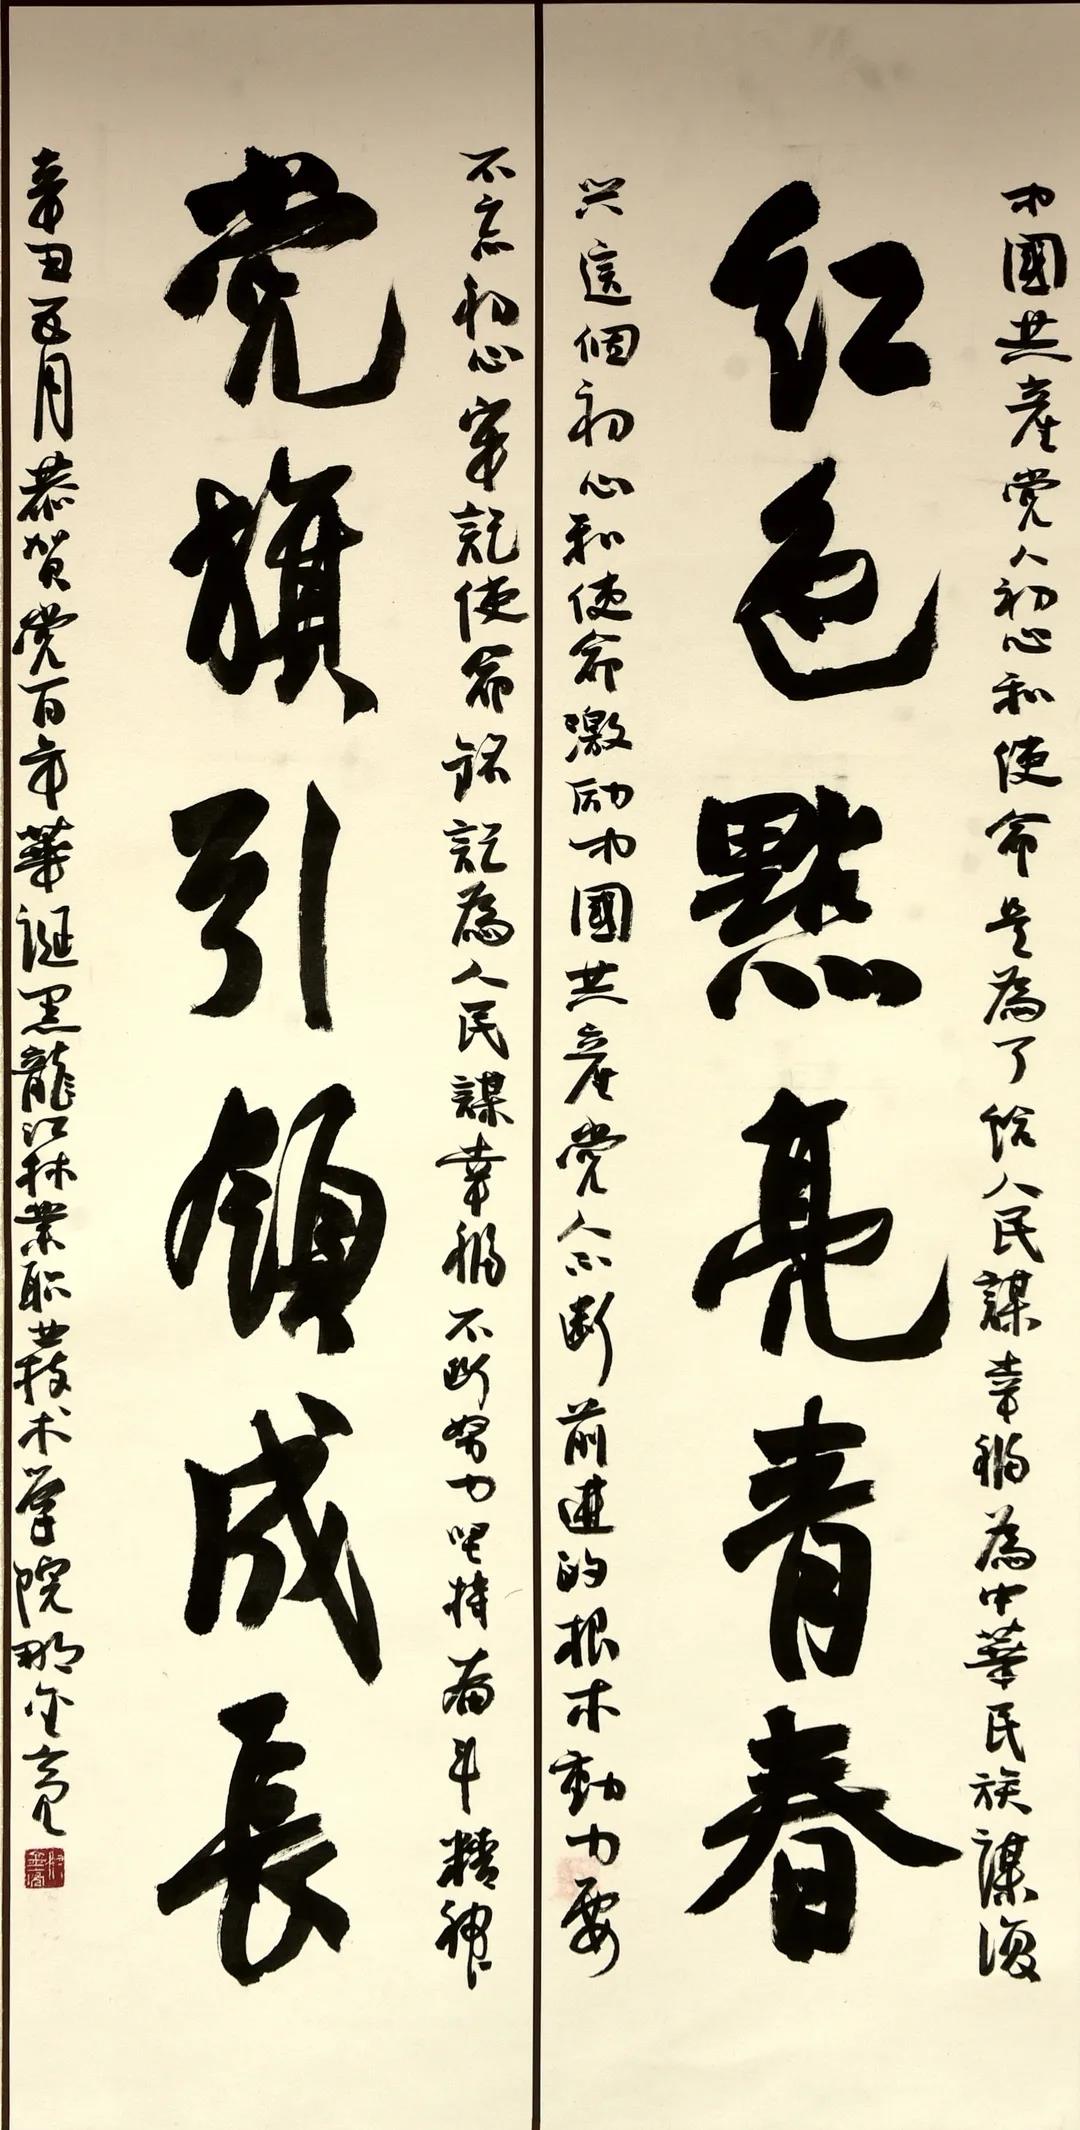 中國共產党人初心和使命是為了给人民謀幸福為中華民族謀復
红色點亮青春
兴這個初心和使命激励中國共產党人不断前進的根本動力要
不忘初心牢記使命铭記為人民謀幸福不断努力坚持奋斗精神
党旗引領成長
辛丑五月恭贺党百年華诞黑龍江林業职业技术学院那金亮